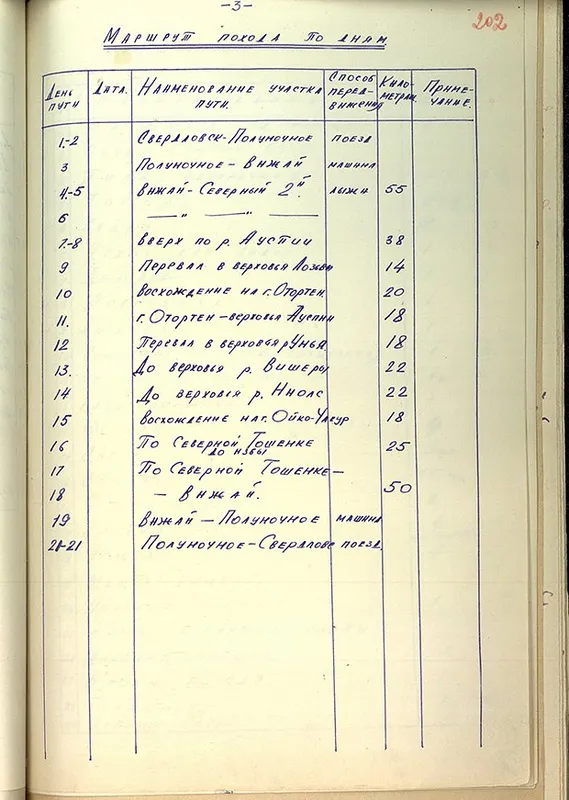 -3-
202
Маршрут похода по дням
День пути | Дата. | Наименование участка пути. | Способ передвижения | Километраж | Примечание.
1.-2 Свердловск-Полуночное поезд
3 Полуночное - Вижай машина
4.-5 Вижай-Северный 2й. лыжи 55
6 — " — " —
7.-8 Вверх по р. Ауспии 38
9 Перевал в верховья Лозьвы 14
10 Восхождение на г. Отортен. 20
11. г. Отортен - верховья Ауспии 18
12 Перевал в верховья р Унья 18
13. До верховья р. Вишеры 22
14 До верховья р. Ниолс 22
15 Восхождение на г. Ойко-Чакур 18
16 По Северной Тошенке до избы 25
17 По Северной Тошенке-
18 - Вижай. 50
19 Вижай - Полуночное машина
20-21 Полуночное-Свердловс поезд.